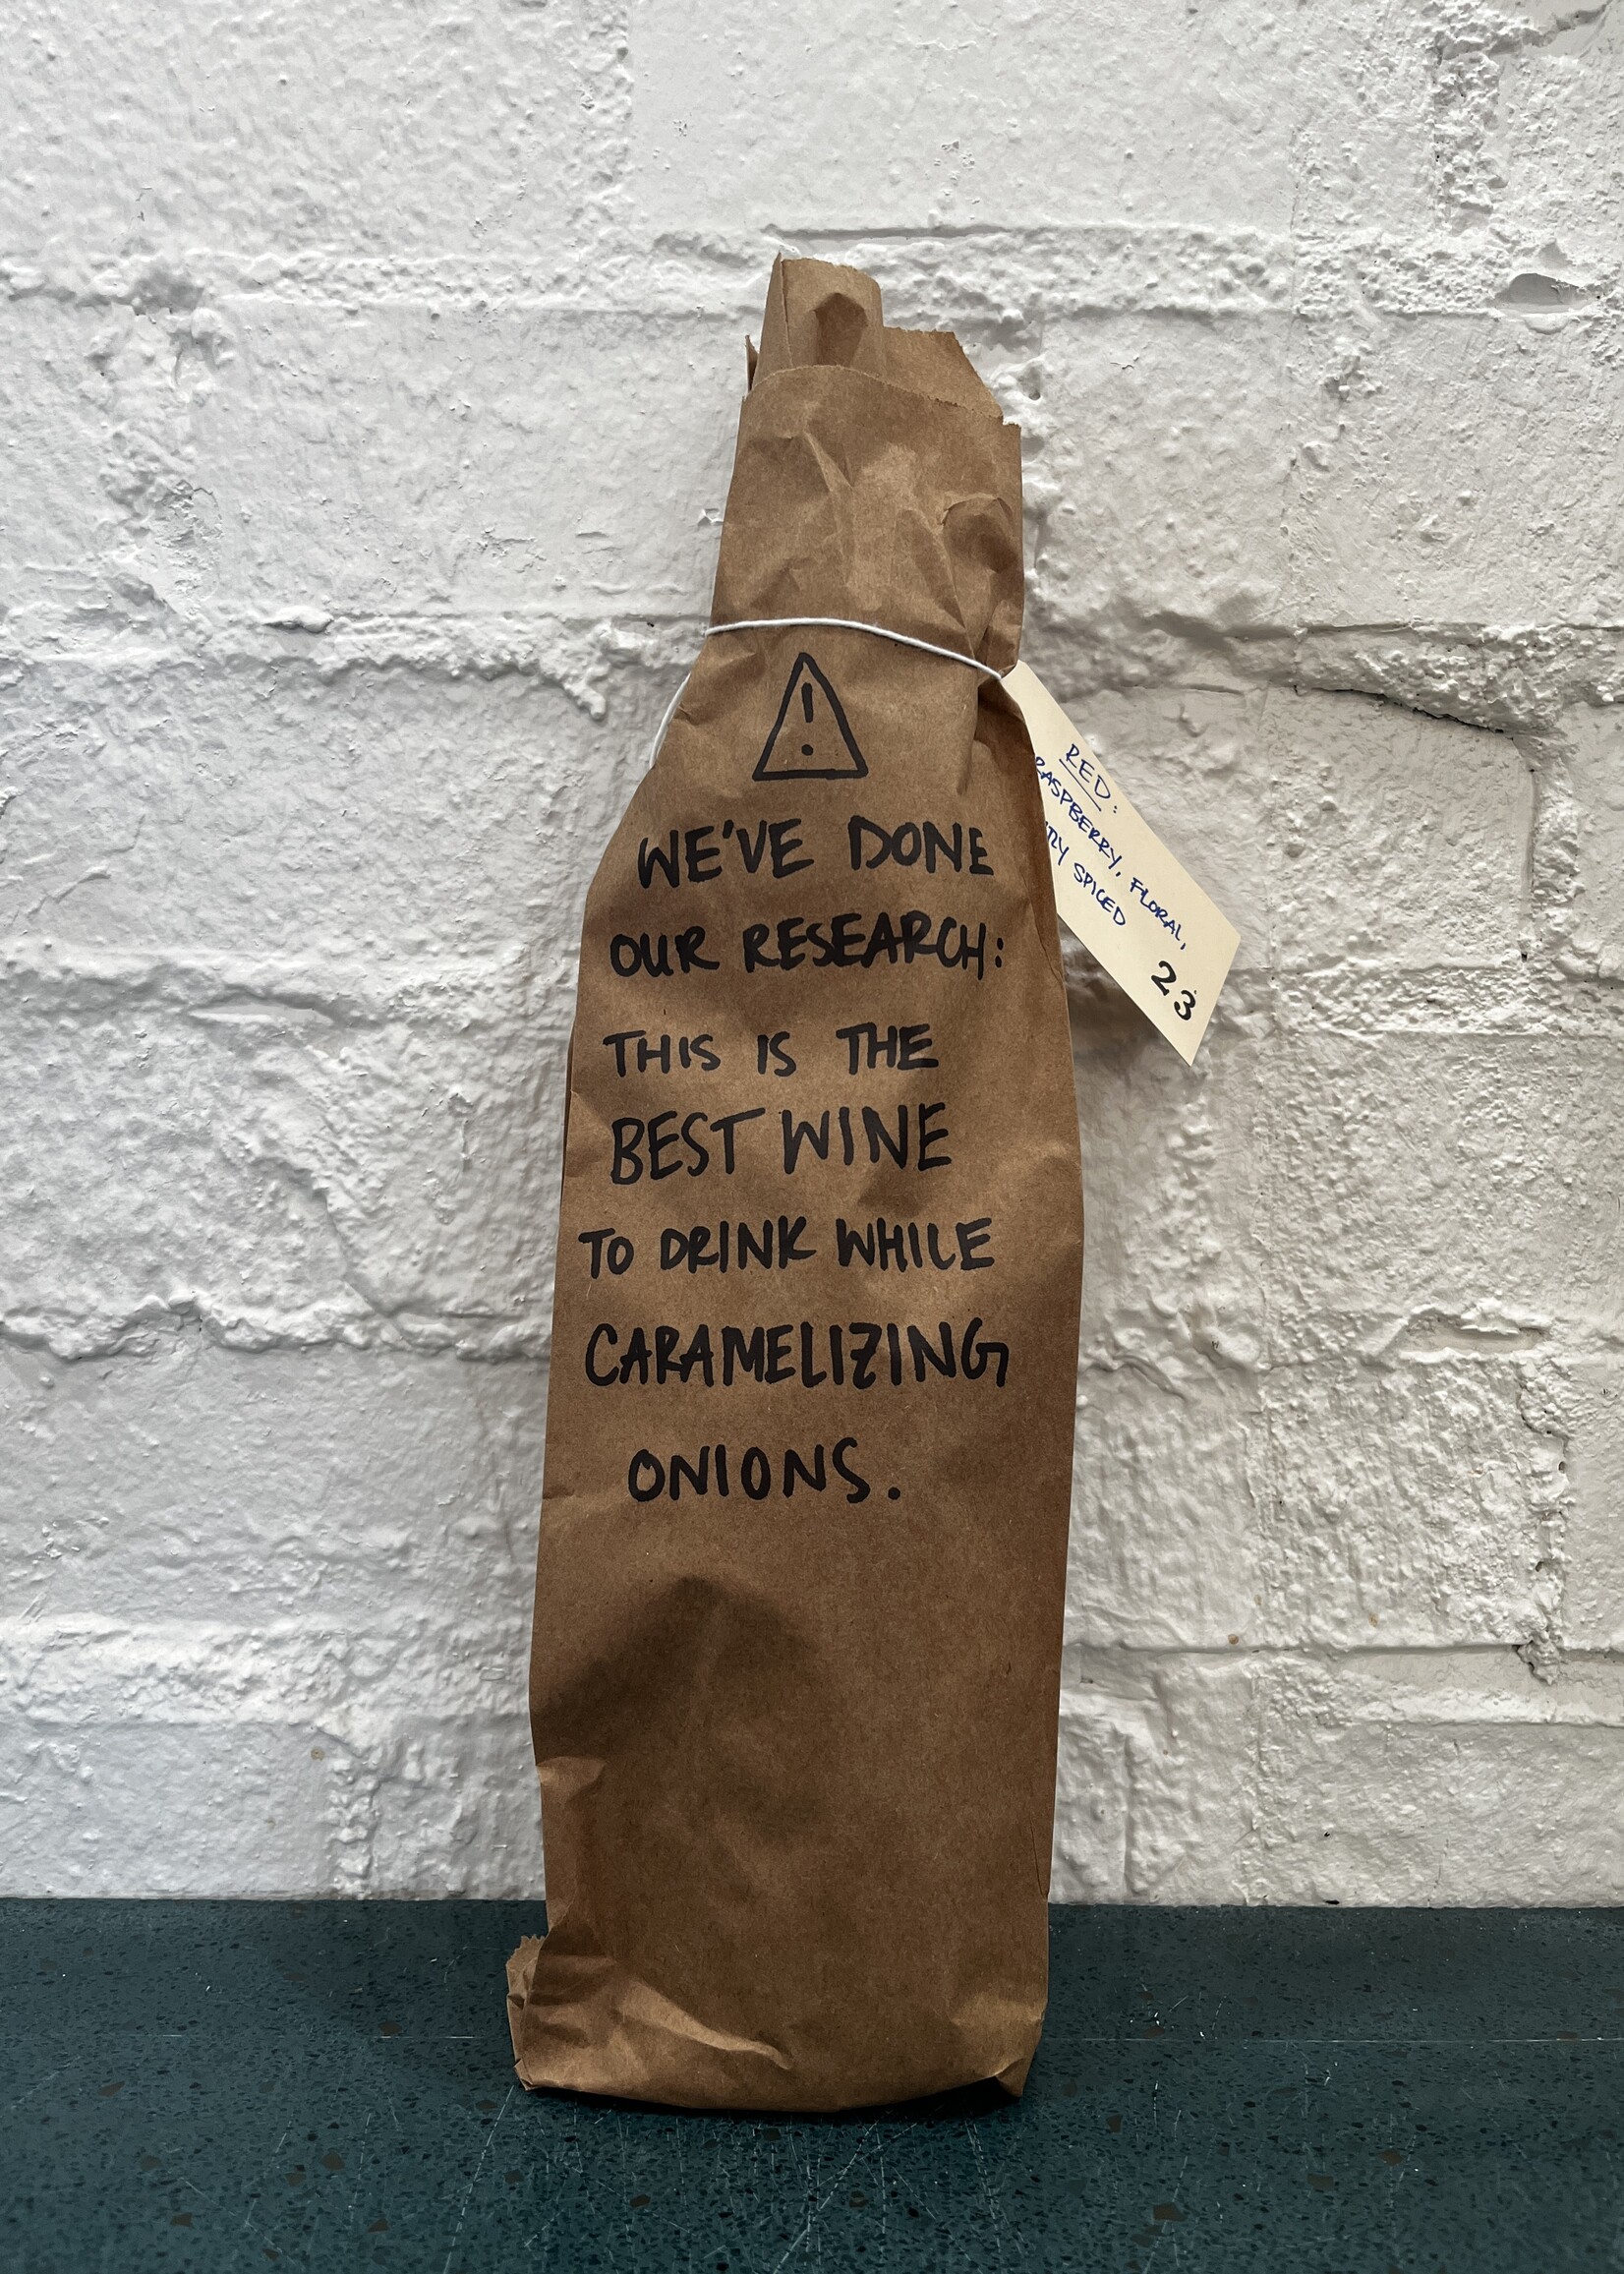 !
WE'VE DONE
OUR RESEARCH:
THIS IS THE
BEST WINE
TO DRINK WHILE
CARAMELIZING
ONIONS.
RED:
RASPBERRY, FLORAL,
SPICED
23